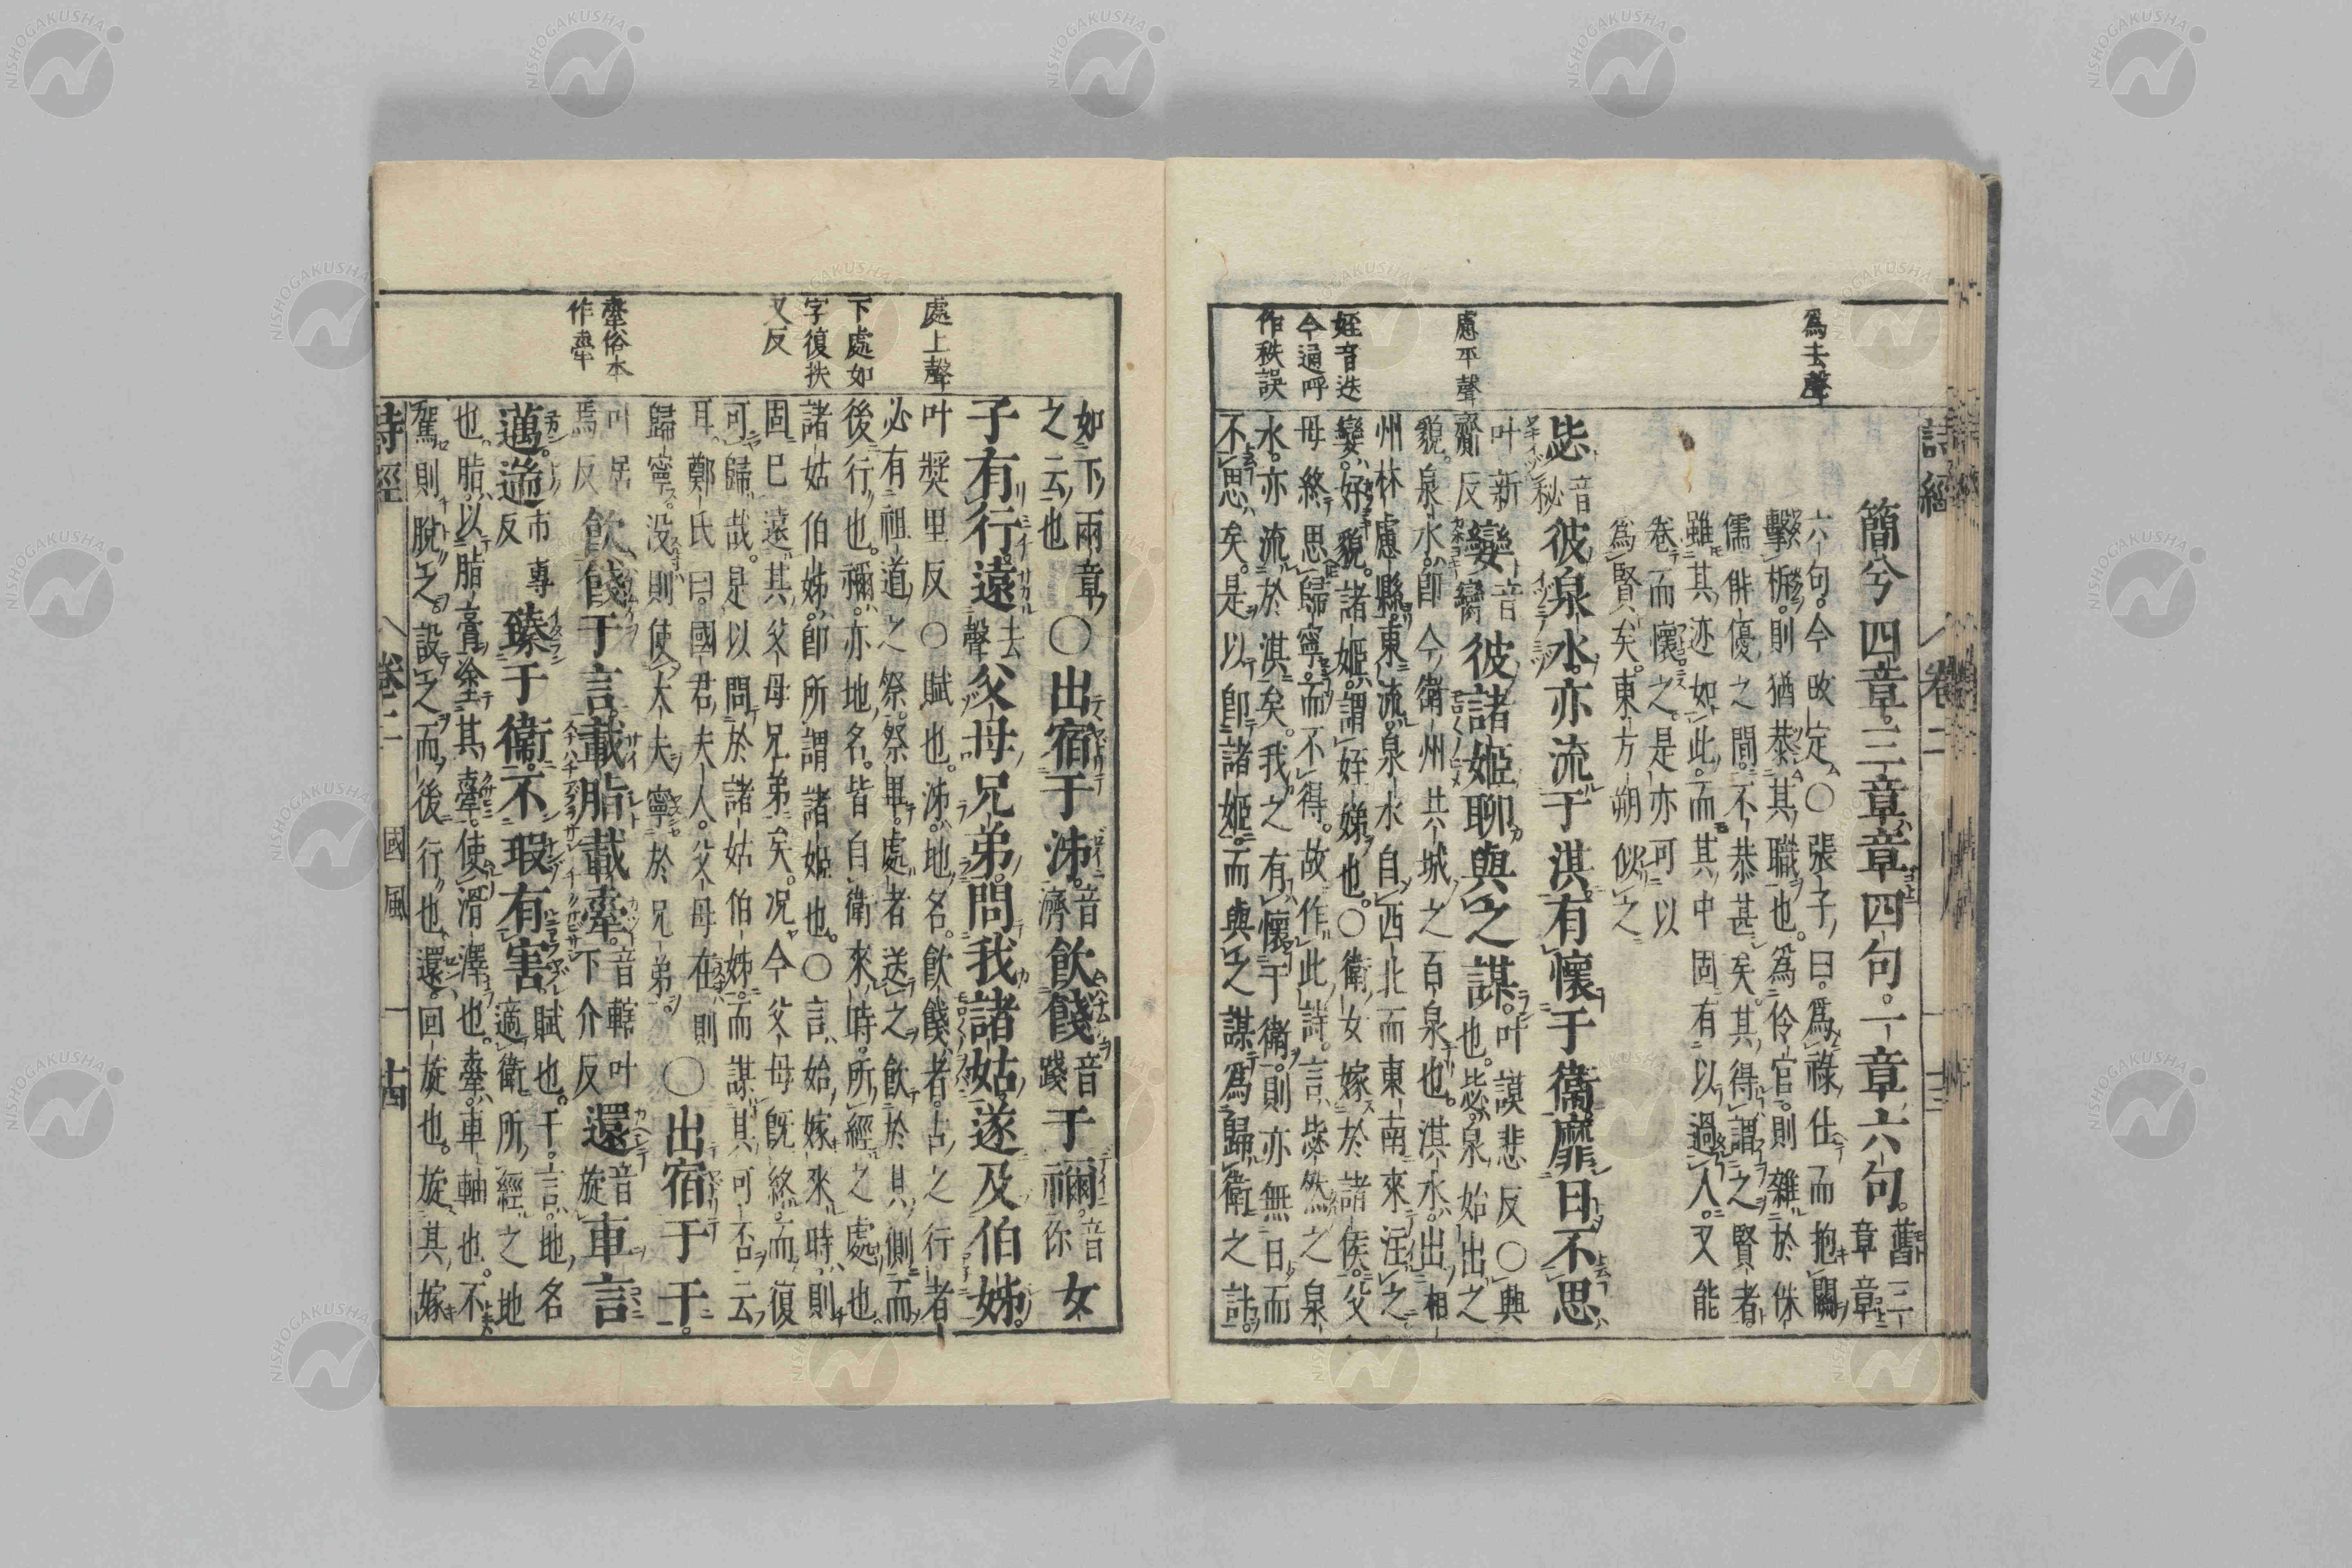 詩經 卷二 十三
爲去聲
慮平聲
姪音迭
今通呼
作秩誤
簡兮四章三章章四句。一章六句。舊三章章
六句。今改定○張子曰。爲祿仕而抱關
擊柝。則猶恭其職也。爲伶官。則雜於侏
儒俳優之間。不恭甚矣。其得謂之賢者。
雖其迹如此。而其中固有以過人。又能
卷而懷之。是亦可以
爲賢矣。東方朔似之
毖音秘彼泉水。亦流于淇。有懷于衞。靡日不思
叶新齎反孌音臠彼諸姬。聊與之謀。叶謨悲反○興也。毖。泉始出之
貌。泉水。卽今衛州共城之百泉也。淇水。出相
州林慮縣。東流。泉水自西北而東南來注之
孌。好貌。諸姬。謂姪娣也。○衛女嫁於諸侯。父
母終。思歸寧。而不得。故作此詩。言毖然之泉
水。亦流於淇矣。我之有懷于衛。則亦無日而
不思矣。是以卽諸姬。而與之謀爲歸衛之計。
處上聲
下處如
字復扶
又反
舝俗本
作牽
如下兩章
之云也○出宿于泲。音濟飲餞音踐于禰。音你女
子有行。遠去聲父母兄弟。問我諸姑。遂及伯姊。
叶奬里反○賦也。泲。地名。飲餞者。古之行者
必有祖道之祭。祭畢。處者送之飲於其側而
後行也。禰。亦地名。皆自衛來時。所經之處也
諸姑伯姊。卽所謂諸姬也。○言始嫁來時則
固已遠其父母兄弟矣。况今父母旣終。而復
可歸哉。是以問於諸姑伯姊。而謀其可否云
耳。鄭氏曰。國君夫人。父母在則
歸寧。没則使大夫寧於兄弟。○出宿于干。
叶居焉反飲餞于言。載脂載舝。音轄叶下介反還音旋車言
邁。遄市專反臻于衞。不瑕有害。賦也。干。言。地名適衛所經之地
也。脂。以脂膏塗其舝。使滑澤也。舝。車軸也。不
駕則脫之。設之而後行也。還。回旋也。旋其嫁
詩經 卷二 國風 十四